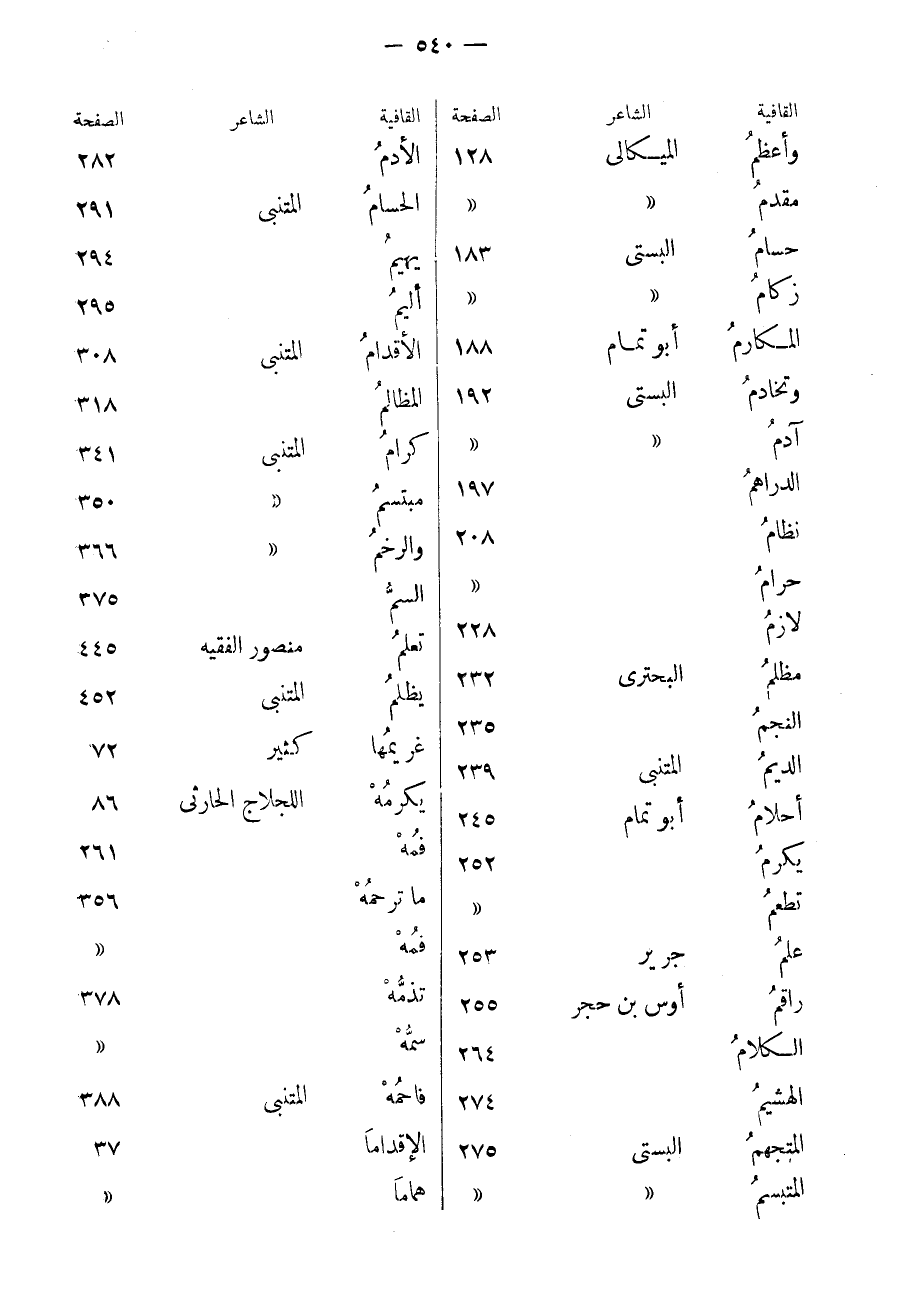 — ٥٤٠ —
القافية الشاعر الصفحة
وأعظمُ الميـكالى ١٢٨
مقدمُ » »
حسامُ البستى ١٨٣
زكامُ » »
المـكارمُ أبو تمـام ١٨٨
وتخادمُ البستى ١٩٢
آدمُ » »
الدراهمُ ١٩٧
نظامُ ٢٠٨
حرامُ »
لازمُ ٢٢٨
مظلمُ البحترى ٢٣٢
النجمُ ٢٣٥
الديمُ المتنبى ٢٣٩
أحلامُ أبو تمام ٢٤٥
يكرمُ ٢٥٢
تطعمُ »
علمُ جرير ٢٥٣
راقمُ أوس بن حجر ٢٥٥
الـكلامُ ٢٦٤
الهشيمُ ٢٧٤
المتجهمُ البستى ٢٧٥
المتبسمُ » »
القافية الشاعر الصفحة
الأدمُ ٢٨٢
الحسامُ المتنبى ٢٩١
يهيمُ ٢٩٤
أليمُ ٢٩٥
الأقدامُ المتنبى ٣٠٨
المظالمُ ٣١٨
كرامُ المتنبى ٣٤١
مبتسمُ » ٣٥٠
والرخمُ » ٣٦٦
السمُّ ٣٧٥
تعلمُ منصور الفقيه ٤٤٥
يظلمُ المتنبى ٤٥٢
غريمُها كثير ٧٢
يكرمُهْ اللجلاج الحارثى ٨٦
فمُهْ ٢٦١
ما ترحمُهْ ٣٥٦
فمُهْ »
تذمُّهْ ٣٧٨
سمُّهْ »
فاحمُهْ المتنبى ٣٨٨
الإقداماَ ٣٧
هماماَ »